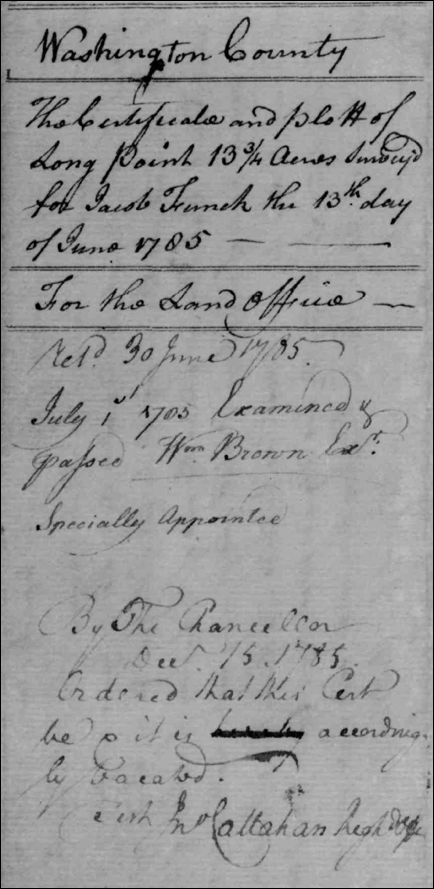 Washington County
The Certificate and plott of
Long Point 13 3/4 Acres Survey'd
for Jacob Funck the 13th. day
of June 1785 —
For the Land Office —
Ret'd. 30 June 1785.
July 1st 1785 Examined &
passed Wm. Brown Exr.
Specially Appointed
By The Chancellor
Decr. 15. 1785.
Ordered that this Cert
be & it is according
ly vacated.
Test Jno Callahan Regr